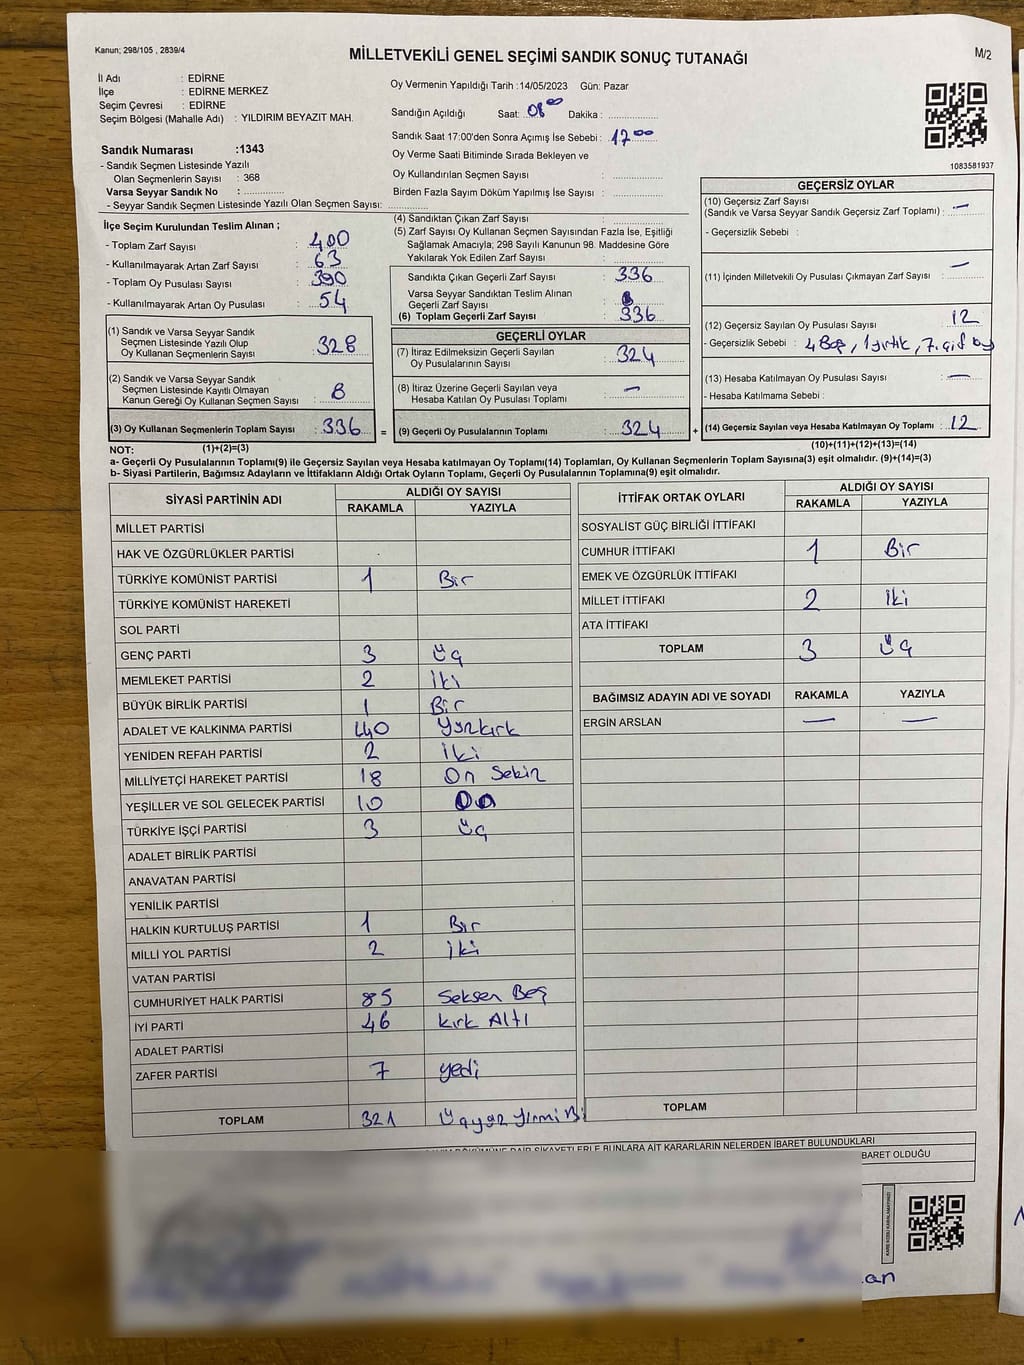 Kanun; 298/105 , 2839/4
MİLLETVEKİLİ GENEL SEÇİMİ SANDIK SONUÇ TUTANAĞI
M/2
İl Adı : EDİRNE
İlçe : EDİRNE MERKEZ
Seçim Çevresi : EDİRNE
Seçim Bölgesi (Mahalle Adı) : YILDIRIM BEYAZIT MAH.
Sandık Numarası :1343
- Sandık Seçmen Listesinde Yazılı
Olan Seçmenlerin Sayısı : 368
Varsa Seyyar Sandık No : ..............
- Seyyar Sandık Seçmen Listesinde Yazılı Olan Seçmen Sayısı: ..............
Oy Vermenin Yapıldığı Tarih :14/05/2023 Gün: Pazar
Sandığın Açıldığı Saat: 08 00 Dakika : ..............
Sandık Saat 17:00'den Sonra Açımış İse Sebebi : 17 00
Oy Verme Saati Bitiminde Sırada Bekleyen ve
Oy Kullandırılan Seçmen Sayısı : ..............
Birden Fazla Sayım Döküm Yapılmış İse Sayısı : ..............
1083581937
İlçe Seçim Kurulundan Teslim Alınan ;
- Toplam Zarf Sayısı : 400
- Kullanılmayarak Artan Zarf Sayısı : 63
- Toplam Oy Pusulası Sayısı : 390
- Kullanılmayarak Artan Oy Pusulası : 54
(1) Sandık ve Varsa Seyyar Sandık
Seçmen Listesinde Yazılı Olup
Oy Kullanan Seçmenlerin Sayısı : 328
(2) Sandık ve Varsa Seyyar Sandık
Seçmen Listesinde Kayıtlı Olmayan
Kanun Gereği Oy Kullanan Seçmen Sayısı : 8
(3) Oy Kullanan Seçmenlerin Toplam Sayısı : 336 =
(4) Sandıktan Çıkan Zarf Sayısı : ..............
(5) Zarf Sayısı Oy Kullanan Seçmen Sayısından Fazla İse, Eşitliği
Sağlamak Amacıyla; 298 Sayılı Kanunun 98. Maddesine Göre
Yakılarak Yok Edilen Zarf Sayısı : ..............
Sandıkta Çıkan Geçerli Zarf Sayısı : 336
Varsa Seyyar Sandıktan Teslim Alınan
Geçerli Zarf Sayısı :
(6) Toplam Geçerli Zarf Sayısı : 336
GEÇERLİ OYLAR
(7) İtiraz Edilmeksizin Geçerli Sayılan
Oy Pusulalarının Sayısı : 324
(8) İtiraz Üzerine Geçerli Sayılan veya
Hesaba Katılan Oy Pusulası Toplamı : —
(9) Geçerli Oy Pusulalarının Toplamı : 324 +
GEÇERSİZ OYLAR
(10) Geçersiz Zarf Sayısı
(Sandık ve Varsa Seyyar Sandık Geçersiz Zarf Toplamı) : —
- Geçersizlik Sebebi :
(11) İçinden Milletvekili Oy Pusulası Çıkmayan Zarf Sayısı : —
(12) Geçersiz Sayılan Oy Pusulası Sayısı : 12
- Geçersizlik Sebebi : 4 Boş, 1 yırtık, 7. çift oy
(13) Hesaba Katılmayan Oy Pusulası Sayısı : —
- Hesaba Katılmama Sebebi :
(14) Geçersiz Sayılan veya Hesaba Katılmayan Oy Toplamı : 12
NOT: (1)+(2)=(3) (10)+(11)+(12)+(13)=(14)
a- Geçerli Oy Pusulalarının Toplamı(9) ile Geçersiz Sayılan veya Hesaba katılmayan Oy Toplamı(14) Toplamları, Oy Kullanan Seçmenlerin Toplam Sayısına(3) eşit olmalıdır. (9)+(14)=(3)
b- Siyasi Partilerin, Bağımsız Adayların ve İttifakların Aldığı Ortak Oyların Toplamı, Geçerli Oy Pusulalarının Toplamına(9) eşit olmalıdır.
SİYASİ PARTİNİN ADI ALDIĞI OY SAYISI
RAKAMLA YAZIYLA
MİLLET PARTİSİ
HAK VE ÖZGÜRLÜKLER PARTİSİ
TÜRKİYE KOMÜNİST PARTİSİ 1 Bir
TÜRKİYE KOMÜNİST HAREKETİ
SOL PARTİ
GENÇ PARTİ 3 üç
MEMLEKET PARTİSİ 2 İki
BÜYÜK BİRLİK PARTİSİ 1 Bir
ADALET VE KALKINMA PARTİSİ 140 Yüzkırk
YENİDEN REFAH PARTİSİ 2 İki
MİLLİYETÇİ HAREKET PARTİSİ 18 On Sekiz
YEŞİLLER VE SOL GELECEK PARTİSİ 10 On
TÜRKİYE İŞÇİ PARTİSİ 3 üç
ADALET BİRLİK PARTİSİ
ANAVATAN PARTİSİ
YENİLİK PARTİSİ
HALKIN KURTULUŞ PARTİSİ 1 Bir
MİLLİ YOL PARTİSİ 2 iki
VATAN PARTİSİ
CUMHURİYET HALK PARTİSİ 85 Seksen Beş
İYİ PARTİ 46 kırk Altı
ADALET PARTİSİ
ZAFER PARTİSİ 7 yedi
TOPLAM 321 Üçyüz Yirmi Bi
İTTİFAK ORTAK OYLARI ALDIĞI OY SAYISI
RAKAMLA YAZIYLA
SOSYALİST GÜÇ BİRLİĞİ İTTİFAKI
CUMHUR İTTİFAKI 1 Bir
EMEK VE ÖZGÜRLÜK İTTİFAKI
MİLLET İTTİFAKI 2 iki
ATA İTTİFAKI
TOPLAM 3 üç
BAĞIMSIZ ADAYIN ADI VE SOYADI RAKAMLA YAZIYLA
ERGİN ARSLAN — —
TOPLAM
DÖKÜMÜNE DAİR ŞİKAYETLERLE BUNLARA AİT KARARLARIN NELERDEN İBARET BULUNDUKLARI
BARET OLDUĞU
an